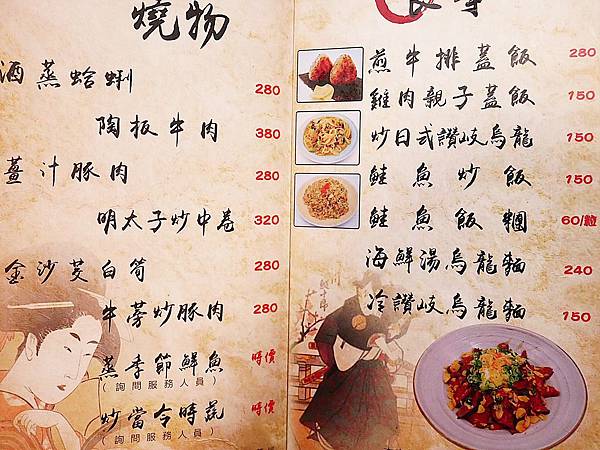 燒物
酒蒸蛤蜊 280
陶板牛肉 380
薑汁豚肉 280
明太子炒中卷 320
金沙茭白筍 280
牛蒡炒豚肉 280
蒸季節鮮魚 時價
(詢問服務人員)
炒當令時蔬 時價
(詢問服務人員)
煎牛排蓋飯 280
雞肉親子蓋飯 150
炒日式讚岐烏龍 150
鮭魚炒飯 150
鮭魚飯糰 60/粒
海鮮湯烏龍麵 240
冷讚岐烏龍麵 150